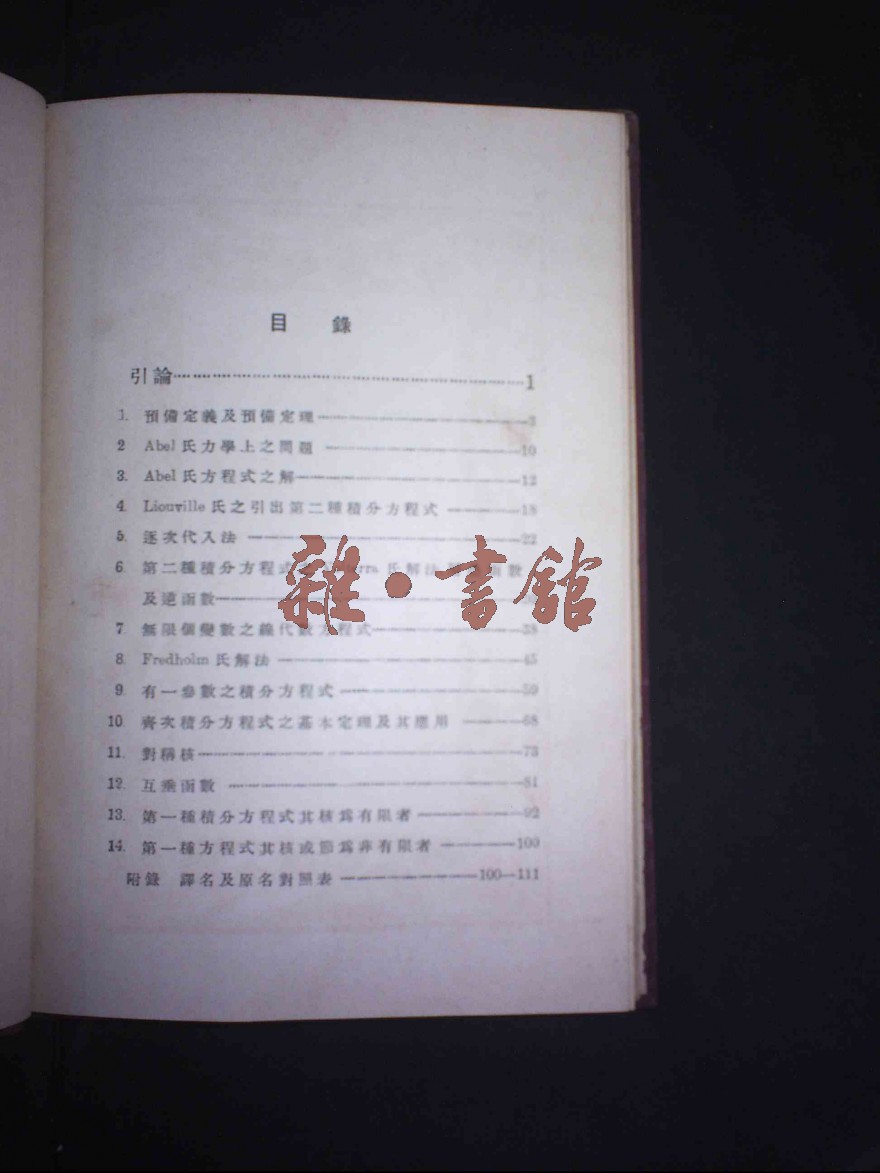 目 錄
引論 1
1. 預備定義及預備定理 3
2 Abel 氏力學上之問題 10
3. Abel 氏方程式之解 12
4. Liouville 氏之引出第二種積分方程式 18
5. 逐次代入法 22
6. 第二種積分方程式 氏解法 函數
及逆函數
7. 無限個變數之線代數方程式 38
8. Fredholm 氏解法 45
9. 有一參數之積分方程式 59
10. 齊次積分方程式之基本定理及其應用 68
11. 對稱核 73
12. 互垂函數 81
13. 第一種積分方程式其核爲有限者 92
14. 第一種方程式其核或節爲非有限者 100
附錄 譯名及原名對照表 100—111
雜·書館